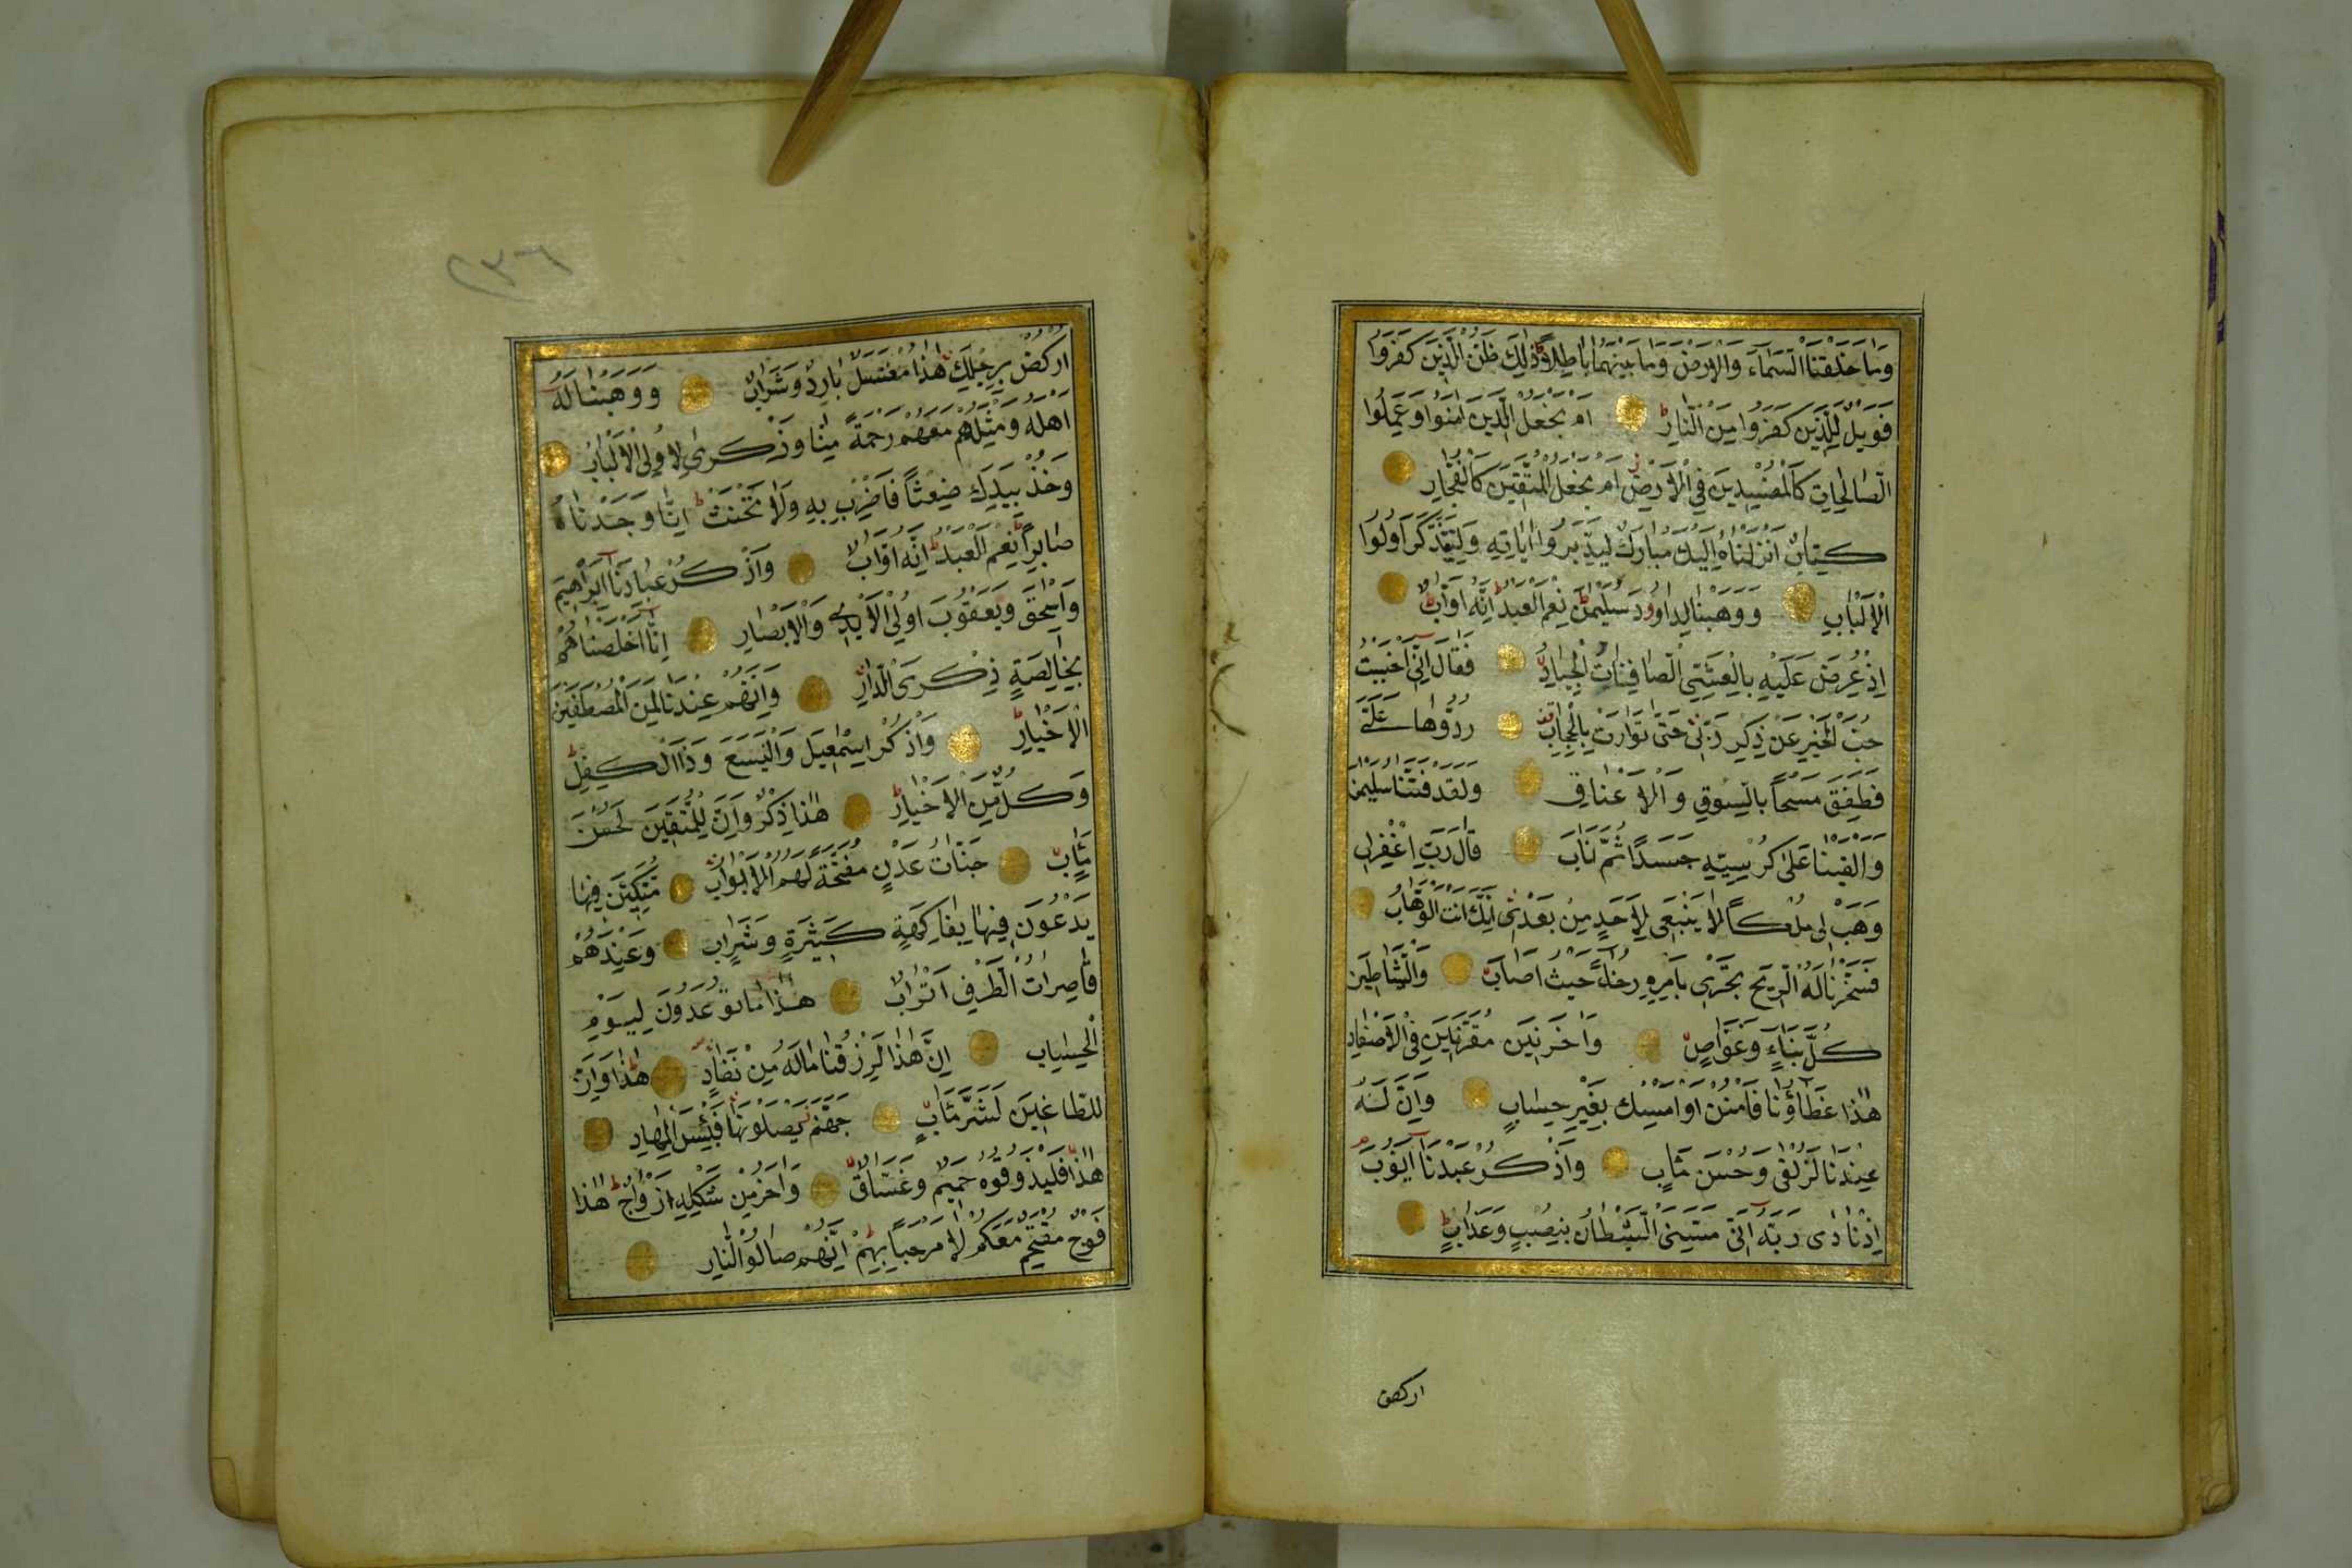 وَمَا خَلَقْنَا السَّمَاءَ وَالْاَرْضَ وَمَا بَيْنَهُمَا بَاطِلًا ذٰلِكَ ظَنُّ الَّذِينَ كَفَرُوا
فَوَيْلٌ لِلَّذِينَ كَفَرُوا مِنَ النَّارِ اَمْ نَجْعَلُ الَّذِينَ اٰمَنُوا وَعَمِلُوا
الصَّالِحَاتِ كَالْمُفْسِدِينَ فِي الْاَرْضِ اَمْ نَجْعَلُ الْمُتَّقِينَ كَالْفُجَّارِ
كِتَابٌ اَنْزَلْنَاهُ اِلَيْكَ مُبَارَكٌ لِيَدَّبَّرُوا اٰيَاتِهِ وَلِيَتَذَكَّرَ اُولُوا
الْاَلْبَابِ وَوَهَبْنَا لِدَاوُودَ سُلَيْمٰنَ نِعْمَ الْعَبْدُ اِنَّهُ اَوَّابٌ
اِذْ عُرِضَ عَلَيْهِ بِالْعَشِيِّ الصَّافِنَاتُ الْجِيَادُ فَقَالَ اِنِّي اَحْبَبْتُ
حُبَّ الْخَيْرِ عَنْ ذِكْرِ رَبِّي حَتّٰى تَوَارَتْ بِالْحِجَابِ رُدُّوهَا عَلَيَّ
فَطَفِقَ مَسْحًا بِالسُّوقِ وَالْاَعْنَاقِ وَلَقَدْ فَتَنَّا سُلَيْمٰنَ
وَاَلْقَيْنَا عَلٰى كُرْسِيِّهِ جَسَدًا ثُمَّ اَنَابَ قَالَ رَبِّ اغْفِرْ لِي
وَهَبْ لِي مُلْكًا لَا يَنْبَغِي لِاَحَدٍ مِنْ بَعْدِي اِنَّكَ اَنْتَ الْوَهَّابُ
فَسَخَّرْنَا لَهُ الرِّيحَ تَجْرِي بِاَمْرِهِ رُخَاءً حَيْثُ اَصَابَ وَالشَّيَاطِينَ
كُلَّ بَنَّاءٍ وَغَوَّاصٍ وَاٰخَرِينَ مُقَرَّنِينَ فِي الْاَصْفَادِ
هٰذَا عَطَاؤُنَا فَامْنُنْ اَوْ اَمْسِكْ بِغَيْرِ حِسَابٍ وَاِنَّ لَهُ
عِنْدَنَا لَزُلْفٰى وَحُسْنَ مَاٰبٍ وَاذْكُرْ عَبْدَنَا اَيُّوبَ
اِذْ نَادٰى رَبَّهُ اَنِّي مَسَّنِيَ الشَّيْطَانُ بِنُصْبٍ وَعَذَابٍ
اركض
٢٣٦
اُرْكُضْ بِرِجْلِكَ هٰذَا مُغْتَسَلٌ بَارِدٌ وَشَرَابٌ وَوَهَبْنَا لَهُ
اَهْلَهُ وَمِثْلَهُمْ مَعَهُمْ رَحْمَةً مِنَّا وَذِكْرٰى لِاُولِي الْاَلْبَابِ
وَخُذْ بِيَدِكَ ضِغْثًا فَاضْرِبْ بِهِ وَلَا تَحْنَثْ اِنَّا وَجَدْنَاهُ
صَابِرًا نِعْمَ الْعَبْدُ اِنَّهُ اَوَّابٌ وَاذْكُرْ عِبَادَنَا اِبْرٰاهِيمَ
وَاِسْحٰقَ وَيَعْقُوبَ اُولِي الْاَيْدِي وَالْاَبْصَارِ اِنَّا اَخْلَصْنَاهُمْ
بِخَالِصَةٍ ذِكْرَى الدَّارِ وَاِنَّهُمْ عِنْدَنَا لَمِنَ الْمُصْطَفَيْنَ
الْاَخْيَارِ وَاذْكُرْ اِسْمٰعِيلَ وَالْيَسَعَ وَذَا الْكِفْلِ
وَكُلٌّ مِنَ الْاَخْيَارِ هٰذَا ذِكْرٌ وَاِنَّ لِلْمُتَّقِينَ لَحُسْنَ
مَاٰبٍ جَنَّاتِ عَدْنٍ مُفَتَّحَةً لَهُمُ الْاَبْوَابُ مُتَّكِئِينَ فِيهَا
يَدْعُونَ فِيهَا بِفَاكِهَةٍ كَثِيرَةٍ وَشَرَابٍ وَعِنْدَهُمْ
قَاصِرَاتُ الطَّرْفِ اَتْرَابٌ هٰذَا مَا تُوعَدُونَ لِيَوْمِ
الْحِسَابِ اِنَّ هٰذَا لَرِزْقُنَا مَا لَهُ مِنْ نَفَادٍ هٰذَا وَاِنَّ
لِلطَّاغِينَ لَشَرَّ مَاٰبٍ جَهَنَّمَ يَصْلَوْنَهَا فَبِئْسَ الْمِهَادُ
هٰذَا فَلْيَذُوقُوهُ حَمِيمٌ وَغَسَّاقٌ وَاٰخَرُ مِنْ شَكْلِهِ اَزْوَاجٌ هٰذَا
فَوْجٌ مُقْتَحِمٌ مَعَكُمْ لَا مَرْحَبًا بِهِمْ اِنَّهُمْ صَالُوا النَّارِ